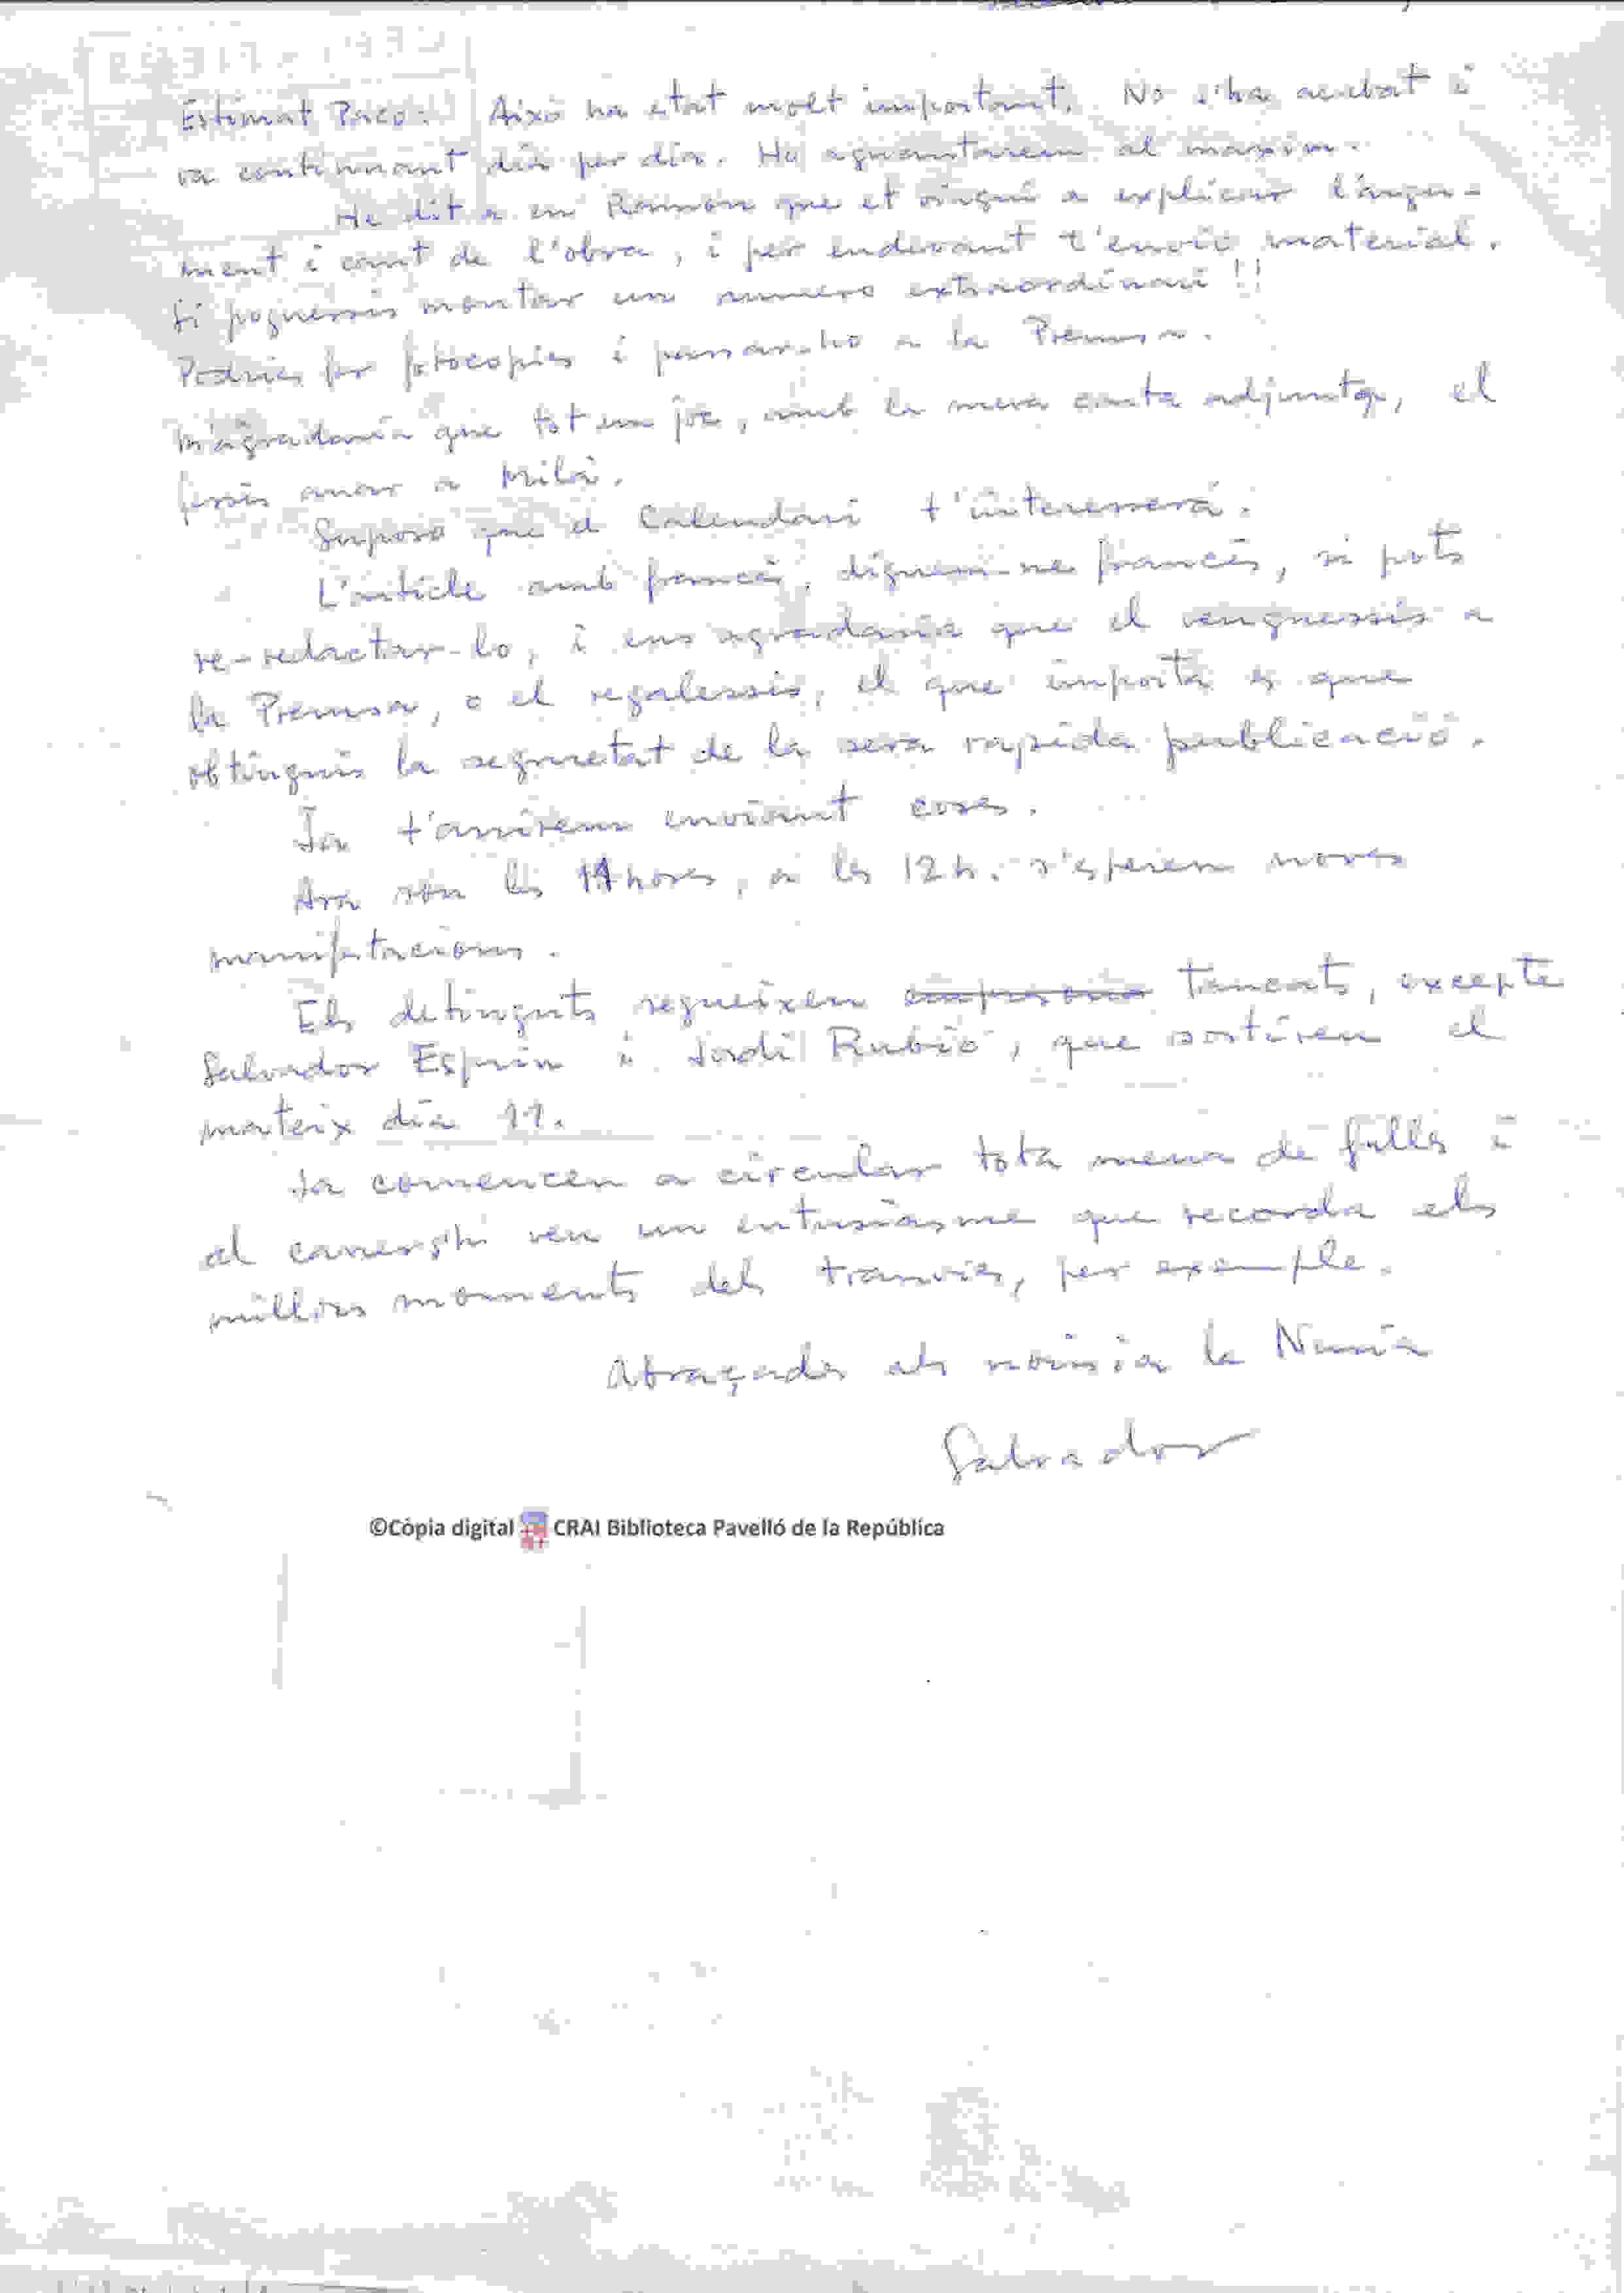 Estimat Paco: Això ha etat molt important. No s'ha acabat i
va continuant dia per dia. Ho aguantarem al maxim.
He dit a en Ramon que et vingui a explicar l'argu-
ment i cant de l'obra, i per endevant t'envio material.
Si poguessis montar un numero extraordinari!!
Podries fer fotocopies i passar-ho a la Premsa.
M'agradaria que tot un joc, amb la meva carta adjunta, el
fessis anar a Milà.
Suposo que el Calendari t'interessarà.
L'article amb francès, diguem-ne francès, si pots
re-redactar-lo, i ens agradaria que el venguessis a
la Premsa, o el regalessis, el que importa es que
obtinguis la seguretat de la seva rapida publicació.
Ja t'anirem enviant coses.
Ara són les 11 hores, a les 12 h. s'esperen noves
manifestacions.
Els detinguts segueixen tancats, excepte
Salvador Espriu i Jordi Rubió, que sortiren el
mateix dia 11.
Ja comencen a circular tota mena de fulls i
al carrer s'hi veu un entusiasme que recorda els
millors moments dels tranvies, per exemple.
Abraçades als nois i a la Nuria
Salvador
©Còpia digital CRAI Biblioteca Pavelló de la República